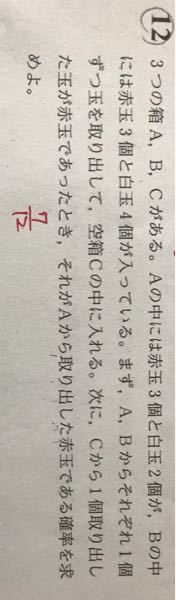 ⑫ 3つの箱A，B，Cがある。Aの中には赤玉3個と白玉2個が，Bの中
には赤玉3個と白玉4個が入っている。まず，A，Bからそれぞれ1個
ずつ玉を取り出して，空箱Cの中に入れる。次に，Cから1個取り出し
た玉が赤玉であったとき，それがAから取り出した赤玉である確率を求
めよ。
7/12